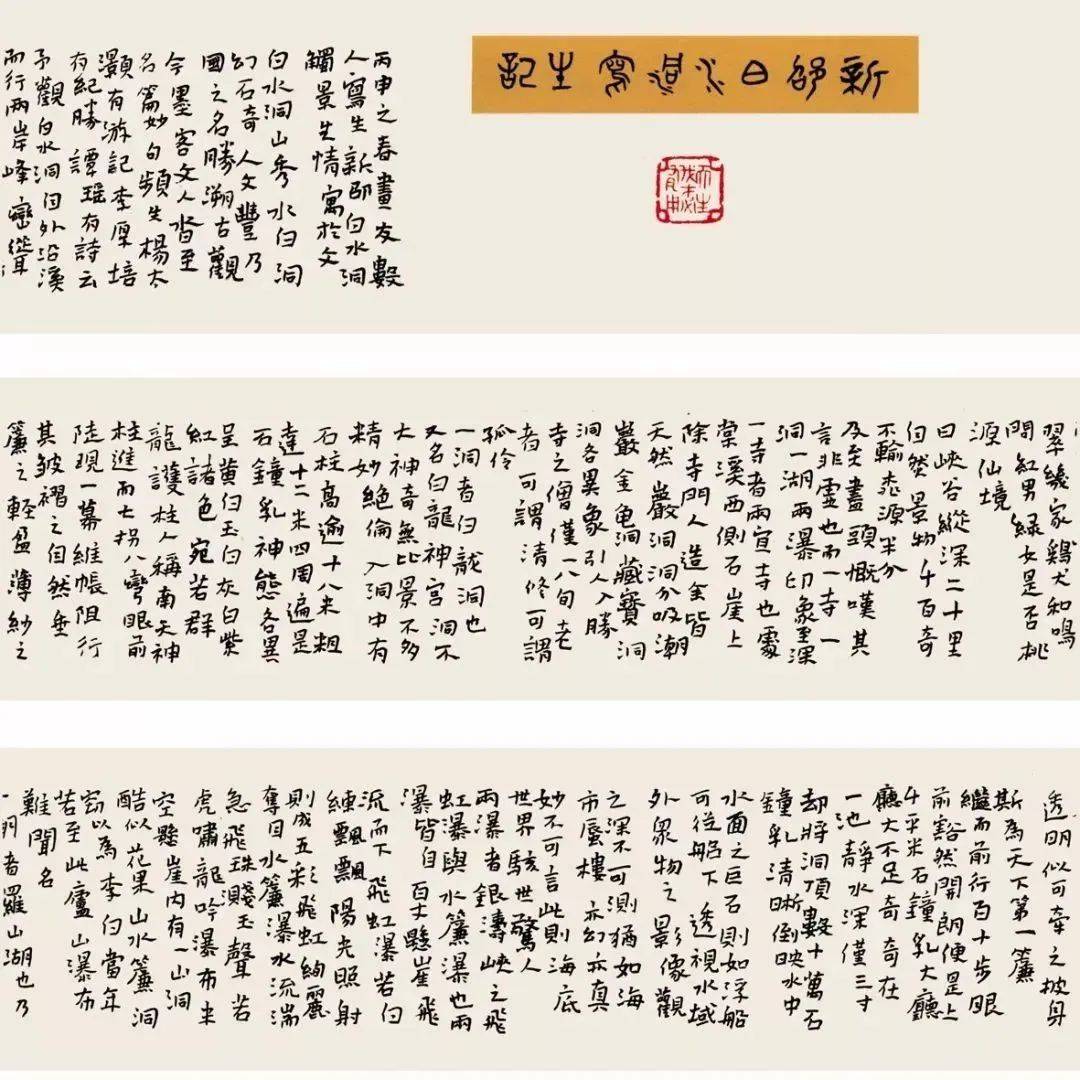 新邵白水洞寫生記
天生我材必有用
丙申之春畫友數
人寫生新邵白水洞
觸景生情寓於文
白水洞山秀水白洞
幻石奇人文豐乃
國之名勝溯古觀
今墨客文人沓至
名篇妙句頻生楊太
灝有游記李厚培
有紀勝譚瑶有詩云
予觀白水洞自外沿溪
而行兩岸峰巒聳
翠幾家雞犬和鳴
閙紅男綠女是否桃
源仙境
曰峽谷縱深二十里
但然景物千百奇
不輸桃源半分
及至盡頭慨嘆其
言非虛也而一寺一
洞一湖兩瀑印象至深
一寺者兩宜寺也處
棠溪西側石崖上
除寺門人造全皆
天然巖洞洞分吸潮
巖金龟洞藏寶洞
洞各異象引人入勝
寺之僧僅一八旬老
者可謂清修可謂
孤伶
一洞者白龍洞也
又名白龍神宫洞不
大神奇無比景不多
精妙絕倫入洞中有
石柱高逾十八米粗
達十二米四周遍是
石鐘乳神態各異
呈黄白玉白灰白紫
紅諸色宛若群
龍護柱人稱南天神
柱進而七拐八彎眼前
陡現一幕維帳阻行
其皱褶之自然垂
簾之輕盈薄紗之
透明似可牽之披身
斯為天下第一簾
繼而前行百十步眼
前豁然開朗便是上
千平米石鐘乳大廳
廳大不足奇奇在
一池靜水深僅三寸
却將洞頂數十萬石
鐘乳清晰倒映水中
水面之巨石則如浮船
可從船下透視水域
外象物之影像觀
之深不可測猶如海
市蜃樓亦幻亦真
妙不可言此則海底
世界駭世驚人
兩瀑者銀濤峽之飛
虹瀑與水簾瀑也兩
瀑皆自百丈懸崖飛
流而下飛虹瀑若白
練飄飄陽光照射
則成五彩飛虹絢麗
奪目水簾瀑水流湍
急飛珠濺玉聲若
虎嘯龍吟瀑布半
空懸崖内有一山洞
酷似花果山水簾洞
窃以為李白當年
若至此廬山瀑布
難聞名
一湖者羅山湖也乃